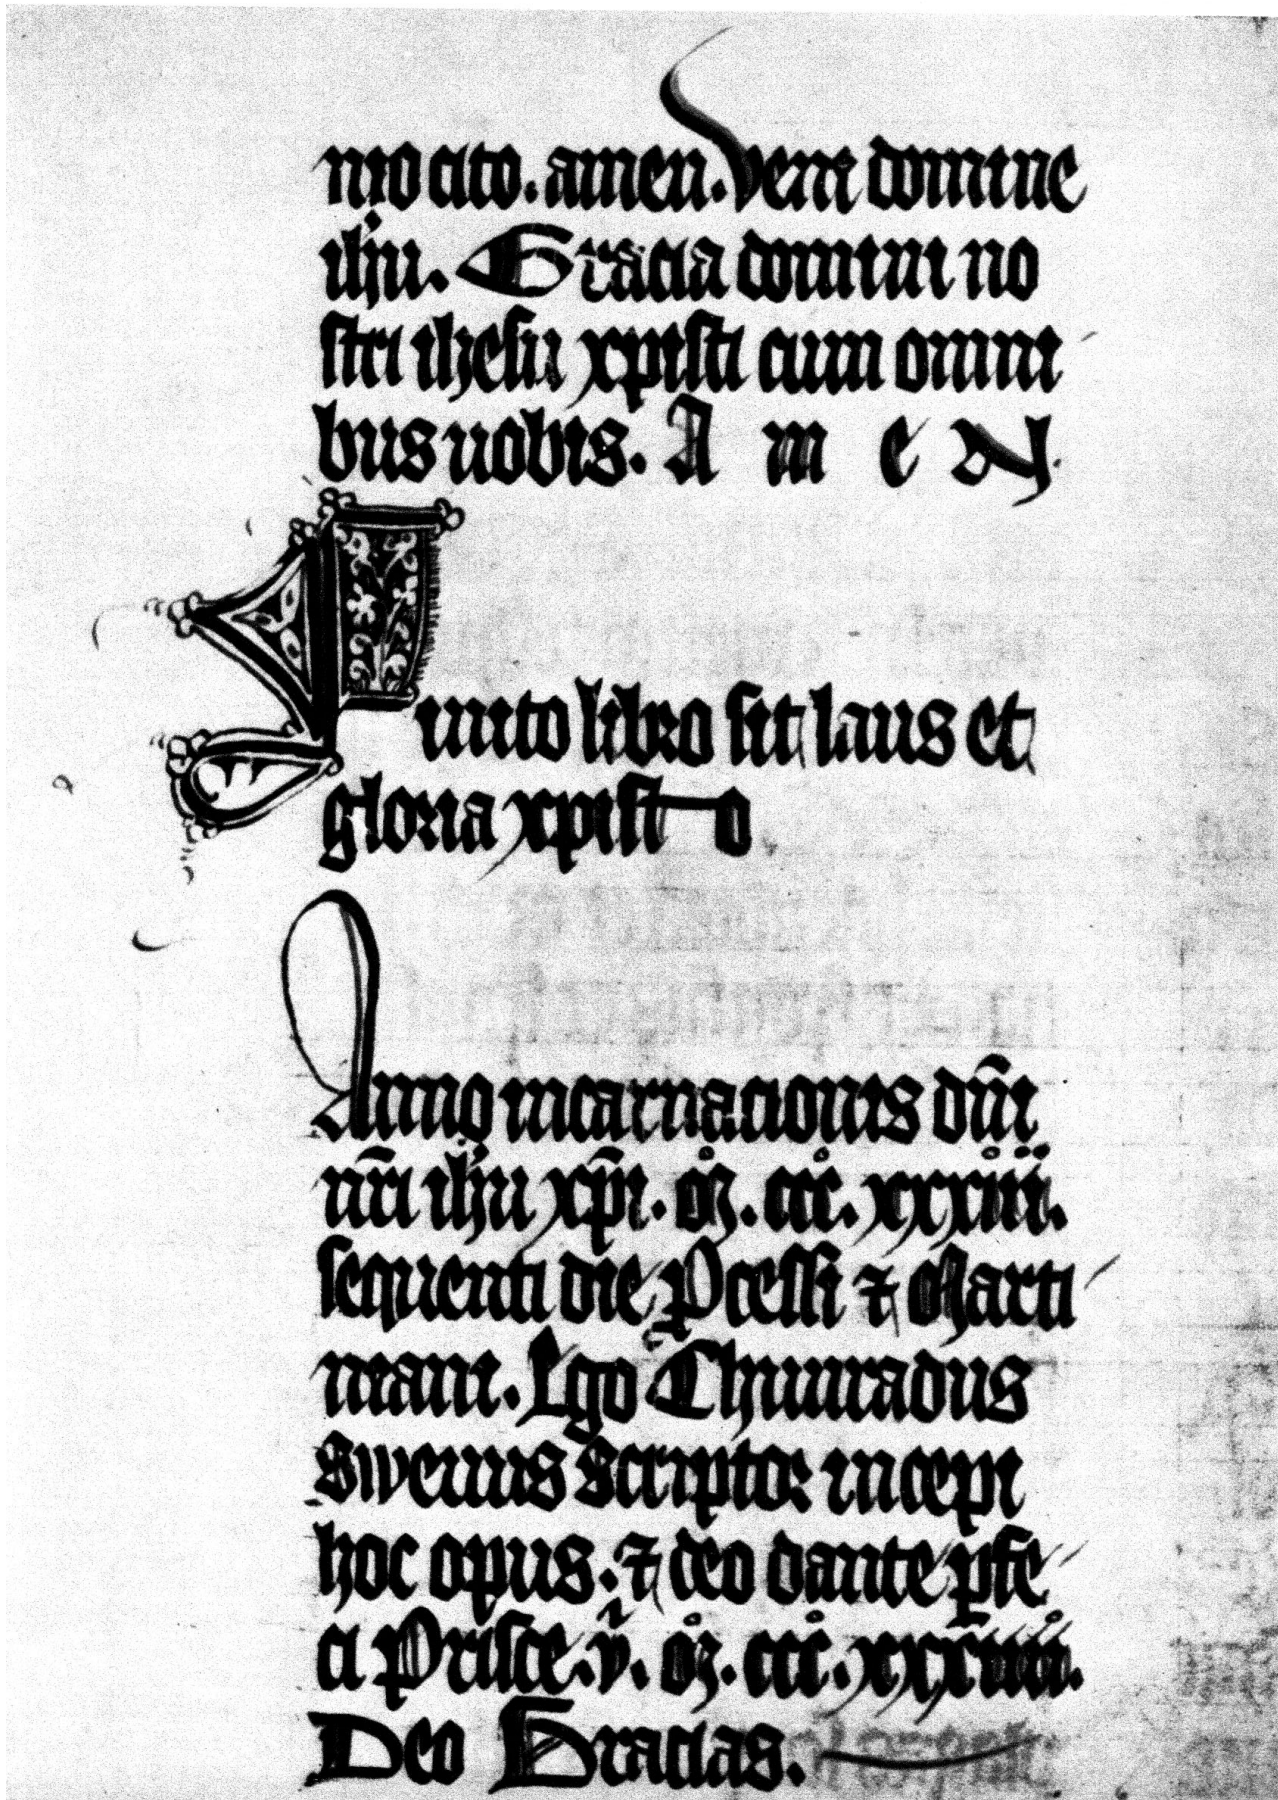 nio cito. amen. Veni domine
ihu. Gracia domini no
stri ihesu xpisti cum omni
bus uobis. A m e N.
Finito libro sit laus et
gloria xpisto
Anno incarnacionis dn̄i
nr̄i ihu xp̄i. M̊. ccc̊. xxxiii.
sequenti die Pcessi ⁊ Marti
niani. Ego Chunradus
Swevus Scriptor incepi
hoc opus. ⁊ deo dante pfe
ci Prisce. v̊. M̊. ccc̊. xxxiiii.
Deo Gracias.